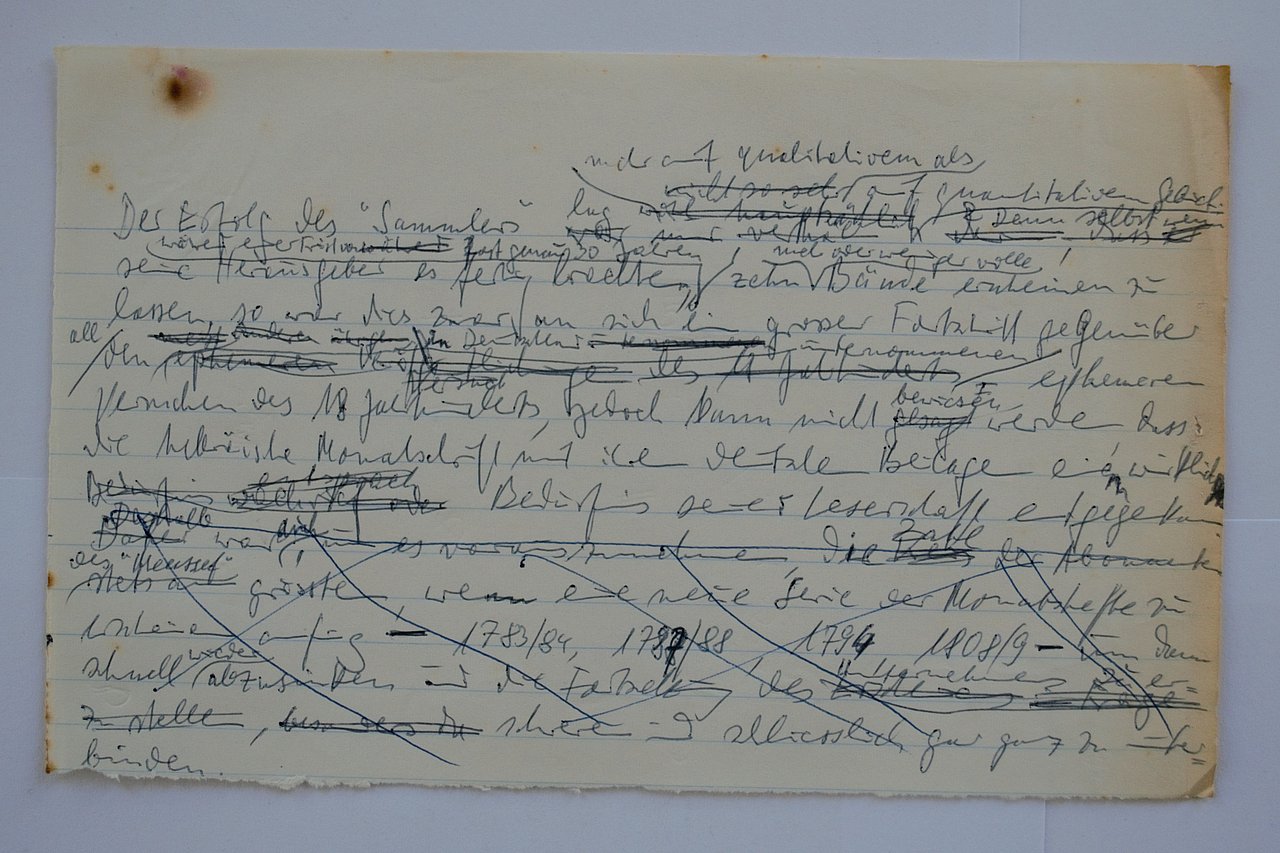 mehr auf qualitativem als
nicht so sehr auf quantitativem Gebiet.
Der Erfolg des "Sammlers" lag war hauptsächlich Denn selbst wenn
wären einer Frist von fast genau 30 Jahren mehr oder weniger volle
seine Herausgeber es fertig brachten, zehn Bände erscheinen zu
lassen, so war dies zwar an sich ein grosser Fortschritt gegenüber
all in Deutschland unternommenen
den ephemeren des 18 Jahrhunderts ephemeren
Versuchen des 18 Jahrhunderts, jedoch kann nicht bewiesen gesagt werden dass
die hebräische Monatsschrift mit ihren deutschen Beilagen ein wirkliches
Bedürfnis entsprach oder Bedürfnis seiner Leserschaft entgegenkam
Deshalb auch
Daher war es vorauszunehmen, die Zahl der Abonnenten
des "Meassef"
stets am grössten, wenn eine neue Serie der Monatshefte zu
erscheinen anfing — 1783/84, 1787/88 1794 1808/9 — um dann
schnell wieder abzusinken und die Fortsetzung des Unternehmens zu er=
zu stellen, besonders zu schweren und schliesslich gar ganz zu unter=
binden.